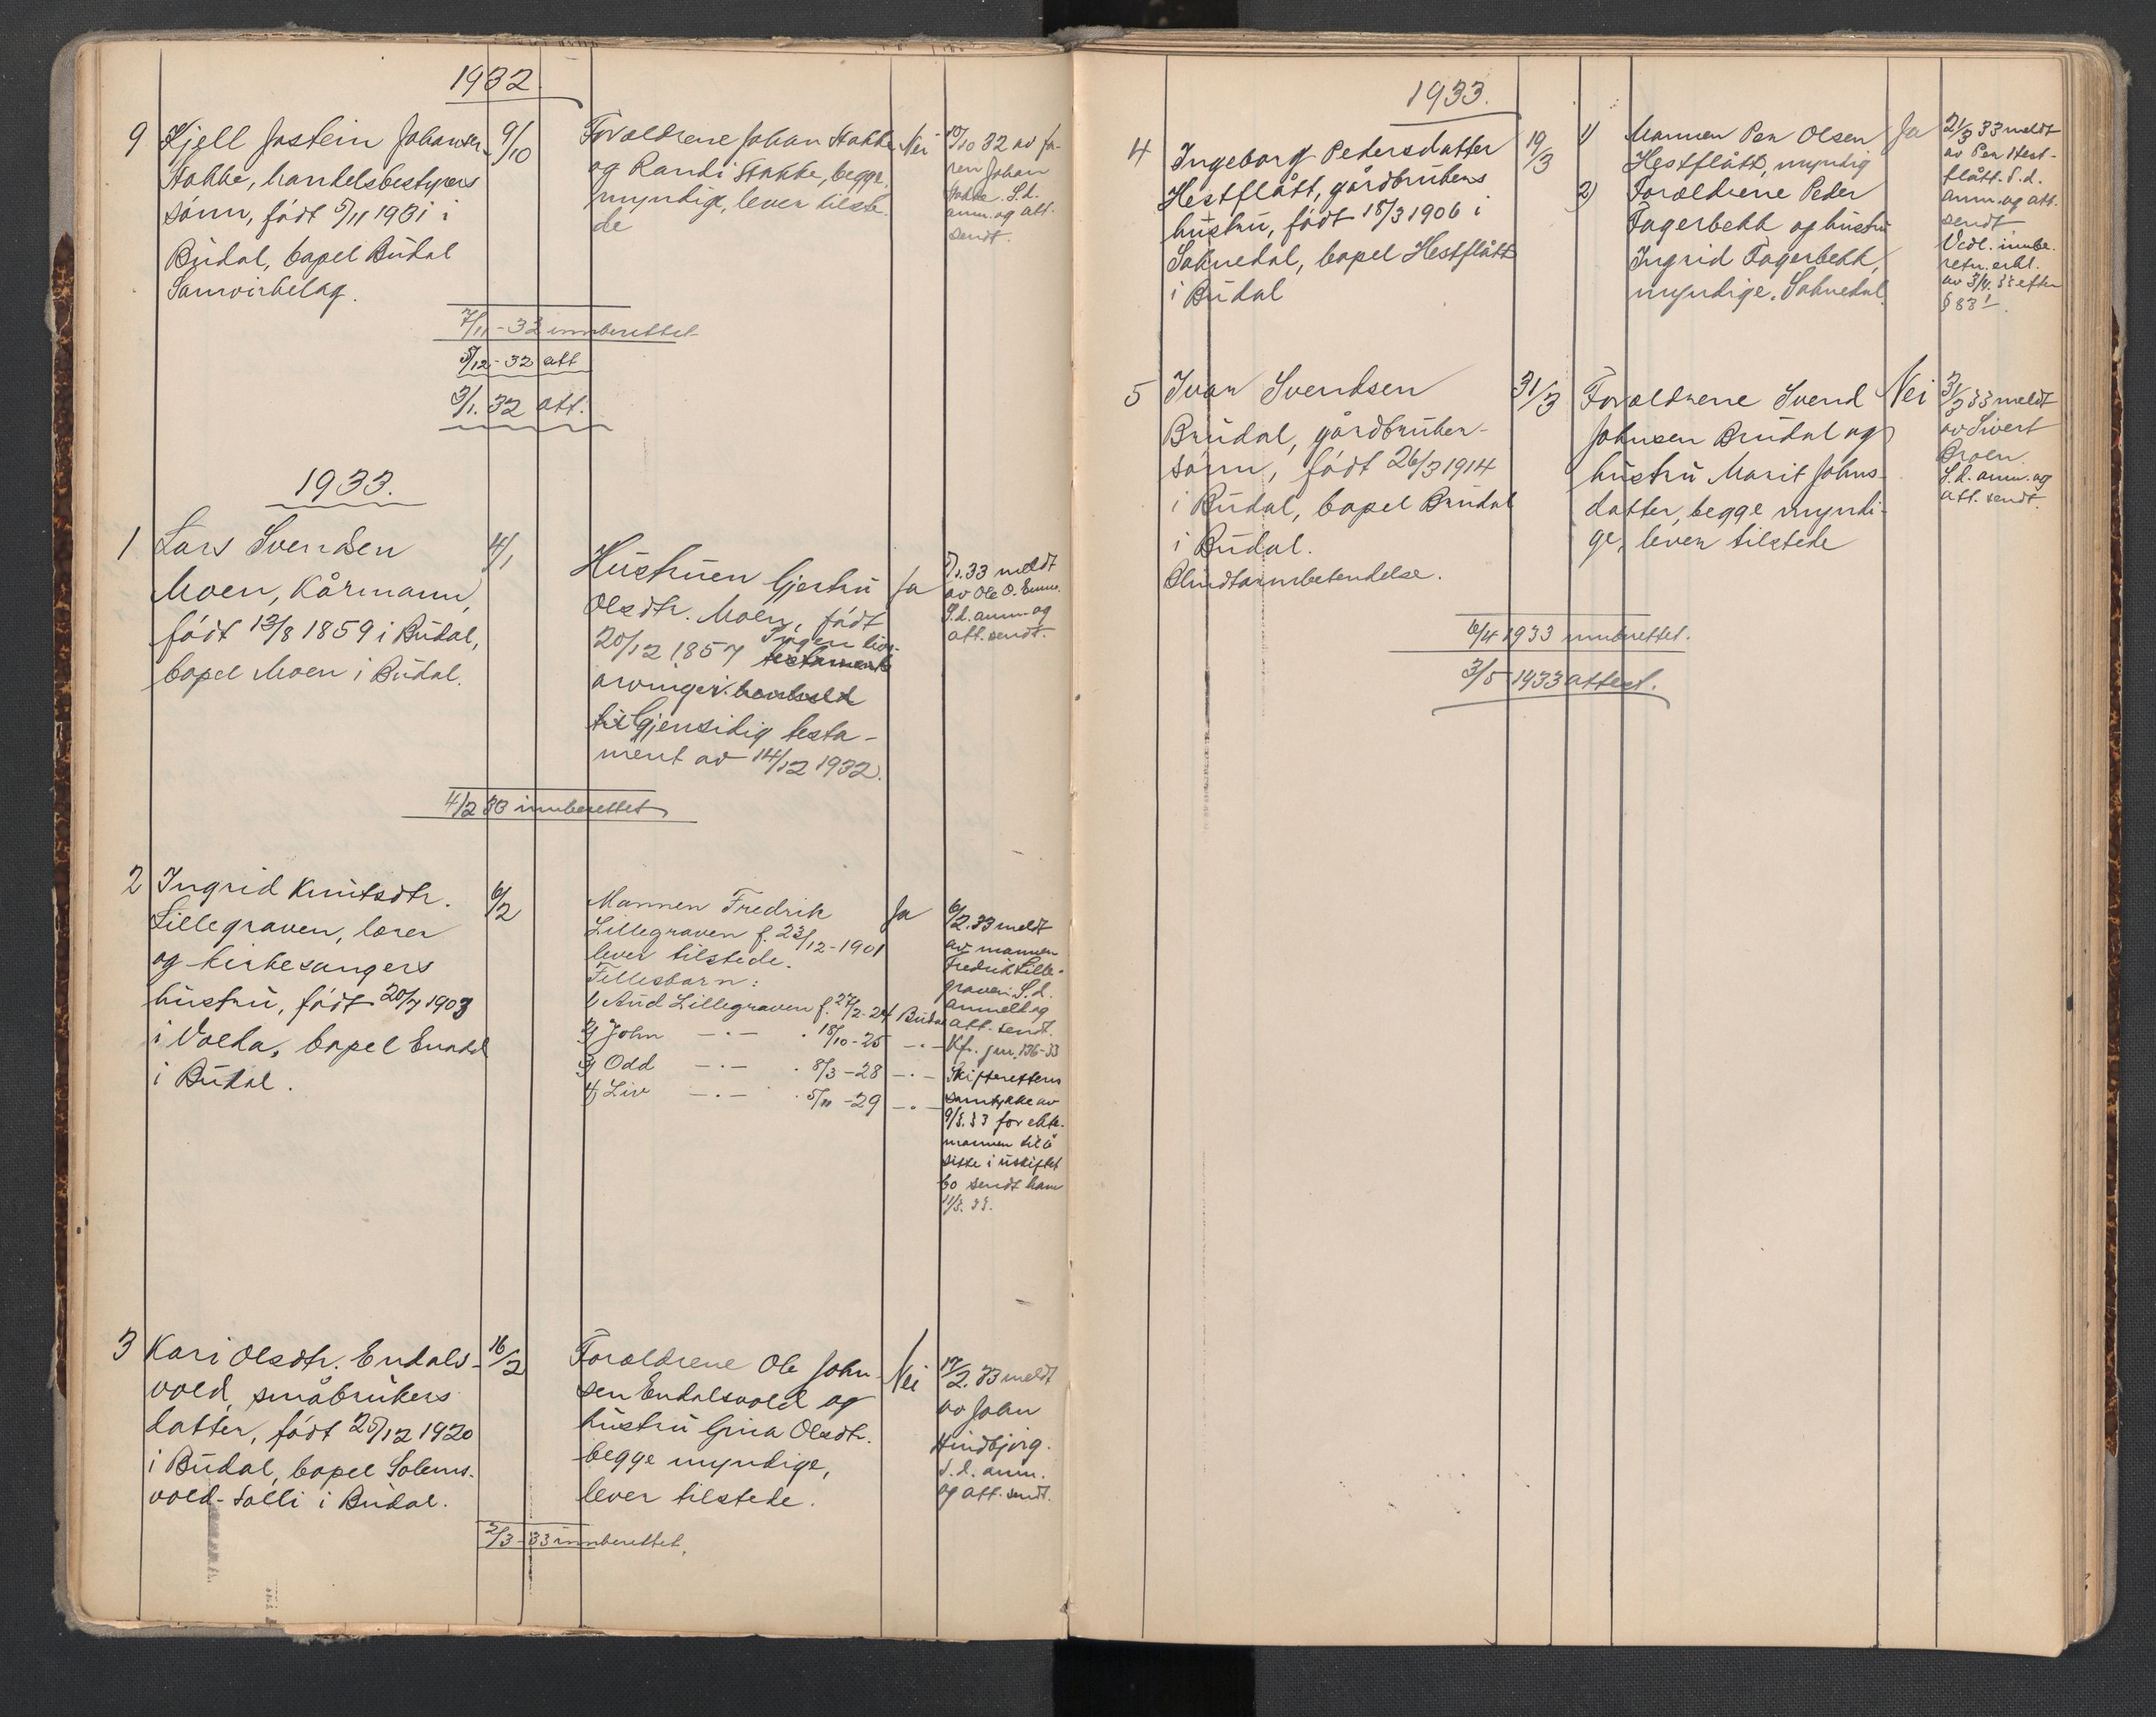 1932
9
Kjell Jostein Johansen
Stokke, handelsbestyrers
sønn, født 5/11 1931 i
Budal, bopel Budal
Samvirkelag.
9/10
Forældrene Johan Stokke
og Randi Stokke, begge
myndige, lever tilste-
de
Nei
10/10 32 av fa-
ren Johan
Stokke. S.d.
anm. og att.
sendt.
7/11-32 innberettet
5/12-32 att
3/1.32 att.
1933.
1
Lars Svendsen
Moen, Kårmann,
født 13/8 1859 i Budal,
bopel Moen i Budal.
4/1
Hustruen Gjertru
Olsdtr. Moen, født
20/12 1857 Ingen livs-
arvinger.
Gjensidig testa-
ment av 14/12 1932.
Ja
33 meldt
av Ole O.
S.d. anm. og
att. sendt.
4/2 33 innberettet
2
Ingrid Knutsdtr.
Lillegraven, lærer
og kirkesangers
hustru, født 20/7 1903
i Volda, bopel Enodd
i Budal.
6/2
Mannen Fredrik
Lillegraven f. 23/12-1901
lever tilstede.
Fellesbarn:
1) Aud Lillegraven f. 27/2-24 Budal
2) John —.— . 18/10-25 —.—
3) Odd —.— . 8/3-28 —.—
4) Liv —.— . 5/11-29 —.—
Ja
6/2.33 meldt
av mannen
Fredrik Lille-
graven. S.d.
anmelt og
att. sendt.
Kfr. jnr. 136-33
Skifterettens
samtykke av
9/3.33 for ekte-
mannen til å
sitte i uskiftet
bo sendt ham
11/3.33.
3
Kari Olsdtr. Endals-
vold, småbrukers
datter, født 25/12 1920
i Budal, bopel Solems-
vold-Solli i Budal.
16/2
Forældrene Ole John-
sen Endalsvold og
hustru Gina Olsdtr.
begge myndige,
lever tilstede.
Nei
17/2.33 meldt
av John
Hindbjørg.
S.d. anm.
og att. sendt.
2/3-33 innberettet.
1933.
4
Ingeborg Pedersdatter
Hestflått, gårdbrukers
hustru, født 18/3 1906 i
Soknedal, bopel Hestflått
i Budal
19/3
1) Mannen Per Olsen
Hestflått, myndig
2) Forældrene Peder
Fagerbekk og hustru
Ingrid Fagerbekk,
myndige. Soknedal.
Ja
21/3 33 meldt
av Per Hest-
flått. S.d.
anm. og att.
sendt
Vedl. innbe.
retn. erkl.
av 3/4.33 efter
§ 83!
5
Ivar Svendsen
Brudal, gårdbruker-
sønn, født 26/3 1914
i Budal, bopel Brudal
i Budal.
Blindtarmbetendelse.
31/3
Forældrene Svend
Johnsen Brudal og
hustru Marit Johns-
datter, begge myndi-
ge, lever tilstede
Nei
31/3 33 meldt
av Sivert
S.d. anm. og
att. sendt.
6/4 1933 innberettet.
3/5-1933 attest.